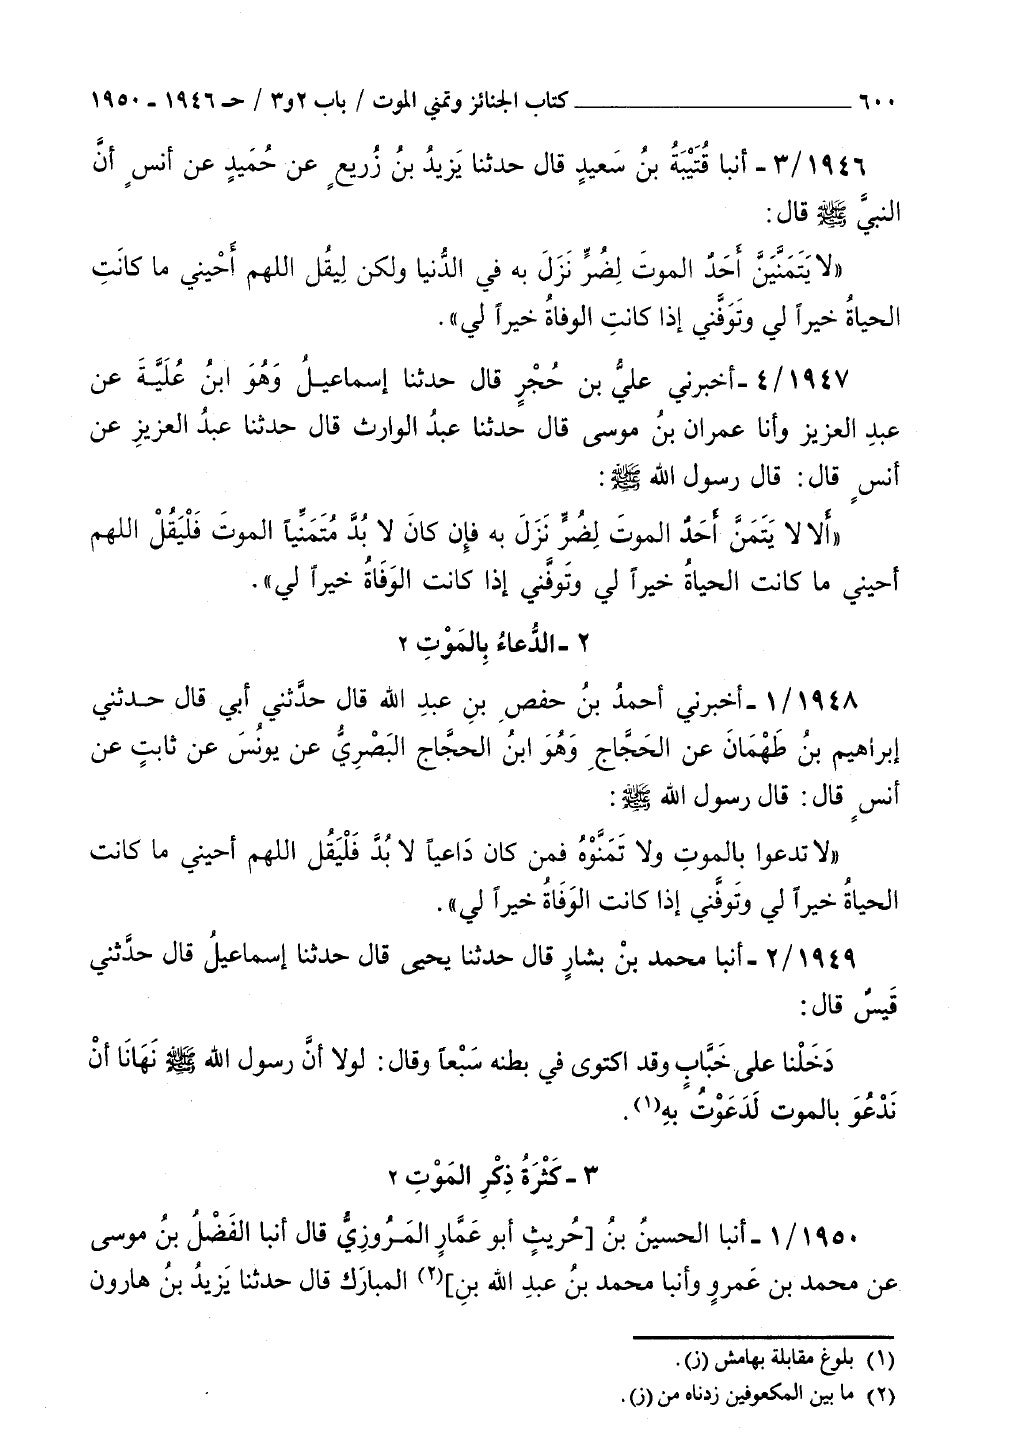 ٦٠٠ ـــــــــــــــــــــــــــــــــــــــ كتاب الجنائز وتمني الموت / باب ٢و٣ / حـ ١٩٤٦ ـ ١٩٥٠
٣/١٩٤٦ ـ أنبا قُتَيْبَةُ بنُ سَعيدٍ قال حدثنا يَزيدُ بنُ زُريعٍ عن حُمَيدٍ عن أنسٍ أنَّ
النبيَّ ﷺ قال:
«لا يَتَمَنَّيَنَّ أَحَدٌ الموتَ لِضُرٍّ نَزَلَ به في الدُّنيا ولكن لِيقُل اللهم أَحْيني ما كانَتِ
الحياةُ خيراً لي وتَوَفَّني إذا كانتِ الوفاةُ خيراً لي».
٤/١٩٤٧ ـ أخبرني عليُّ بن حُجْرٍ قال حدثنا إسماعيلُ وَهُوَ ابنُ عُلَيَّةَ عن
عبدِ العزيز وأنا عمران بنُ موسى قال حدثنا عبدُ الوارث قال حدثنا عبدُ العزيزِ عن
أنسٍ قال: قال رسول الله ﷺ:
«أَلا لا يَتَمَنَّ أَحَدٌ الموتَ لِضُرٍّ نَزَلَ به فإِن كانَ لا بُدَّ مُتَمَنِّياً الموتَ فَلْيَقُلْ اللهم
أحيني ما كانت الحياةُ خيراً لي وتَوفَّني إذا كانت الوَفَاةُ خيراً لي».
٢ ـ الدُّعاءُ بِالمَوْتِ ٢
١/١٩٤٨ ـ أخبرني أحمدُ بنُ حفصِ بنِ عبدِ الله قال حدَّثني أبي قال حدثني
إبراهيم بنُ طَهْمَانَ عن الحَجَّاجِ وَهُوَ ابنُ الحجَّاج البَصْرِيُّ عن يونُسَ عن ثابتٍ عن
أنسٍ قال: قال رسول الله ﷺ:
«لا تدعوا بالموتِ ولا تَمَنَّوْهُ فمن كان دَاعياً لا بُدَّ فَلْيَقُل اللهم أحيني ما كانت
الحياةُ خيراً لي وتَوفَّني إذا كانت الوَفَاةُ خيراً لي».
٢/١٩٤٩ ـ أنبا محمد بنْ بشارٍ قال حدثنا يحيى قال حدثنا إسماعيلُ قال حدَّثني
قَيسٌ قال:
دَخَلْنا على خَبَّابٍ وقد اكتوى في بطنه سَبْعاً وقال: لولا أنَّ رسول الله ﷺ نَهَانَا أنْ
نَدْعُوَ بالموت لَدَعَوْتُ بهِ(١).
٣ ـ كَثْرَةُ ذِكْرِ المَوْتِ ٢
١/١٩٥٠ ـ أنبا الحسينُ بنُ [حُريثٍ أبو عَمَّارٍ المَروزِيُّ قال أنبا الفَضْلُ بنُ موسى
عن محمد بن عَمروٍ وأنبا محمد بنُ عبدِ الله بنِ](٢) المبارَك قال حدثنا يَزيدُ بنُ هارون
(١) بلوغ مقابلة بهامش (ز).
(٢) ما بين المكعوفين زدناه من (ز).